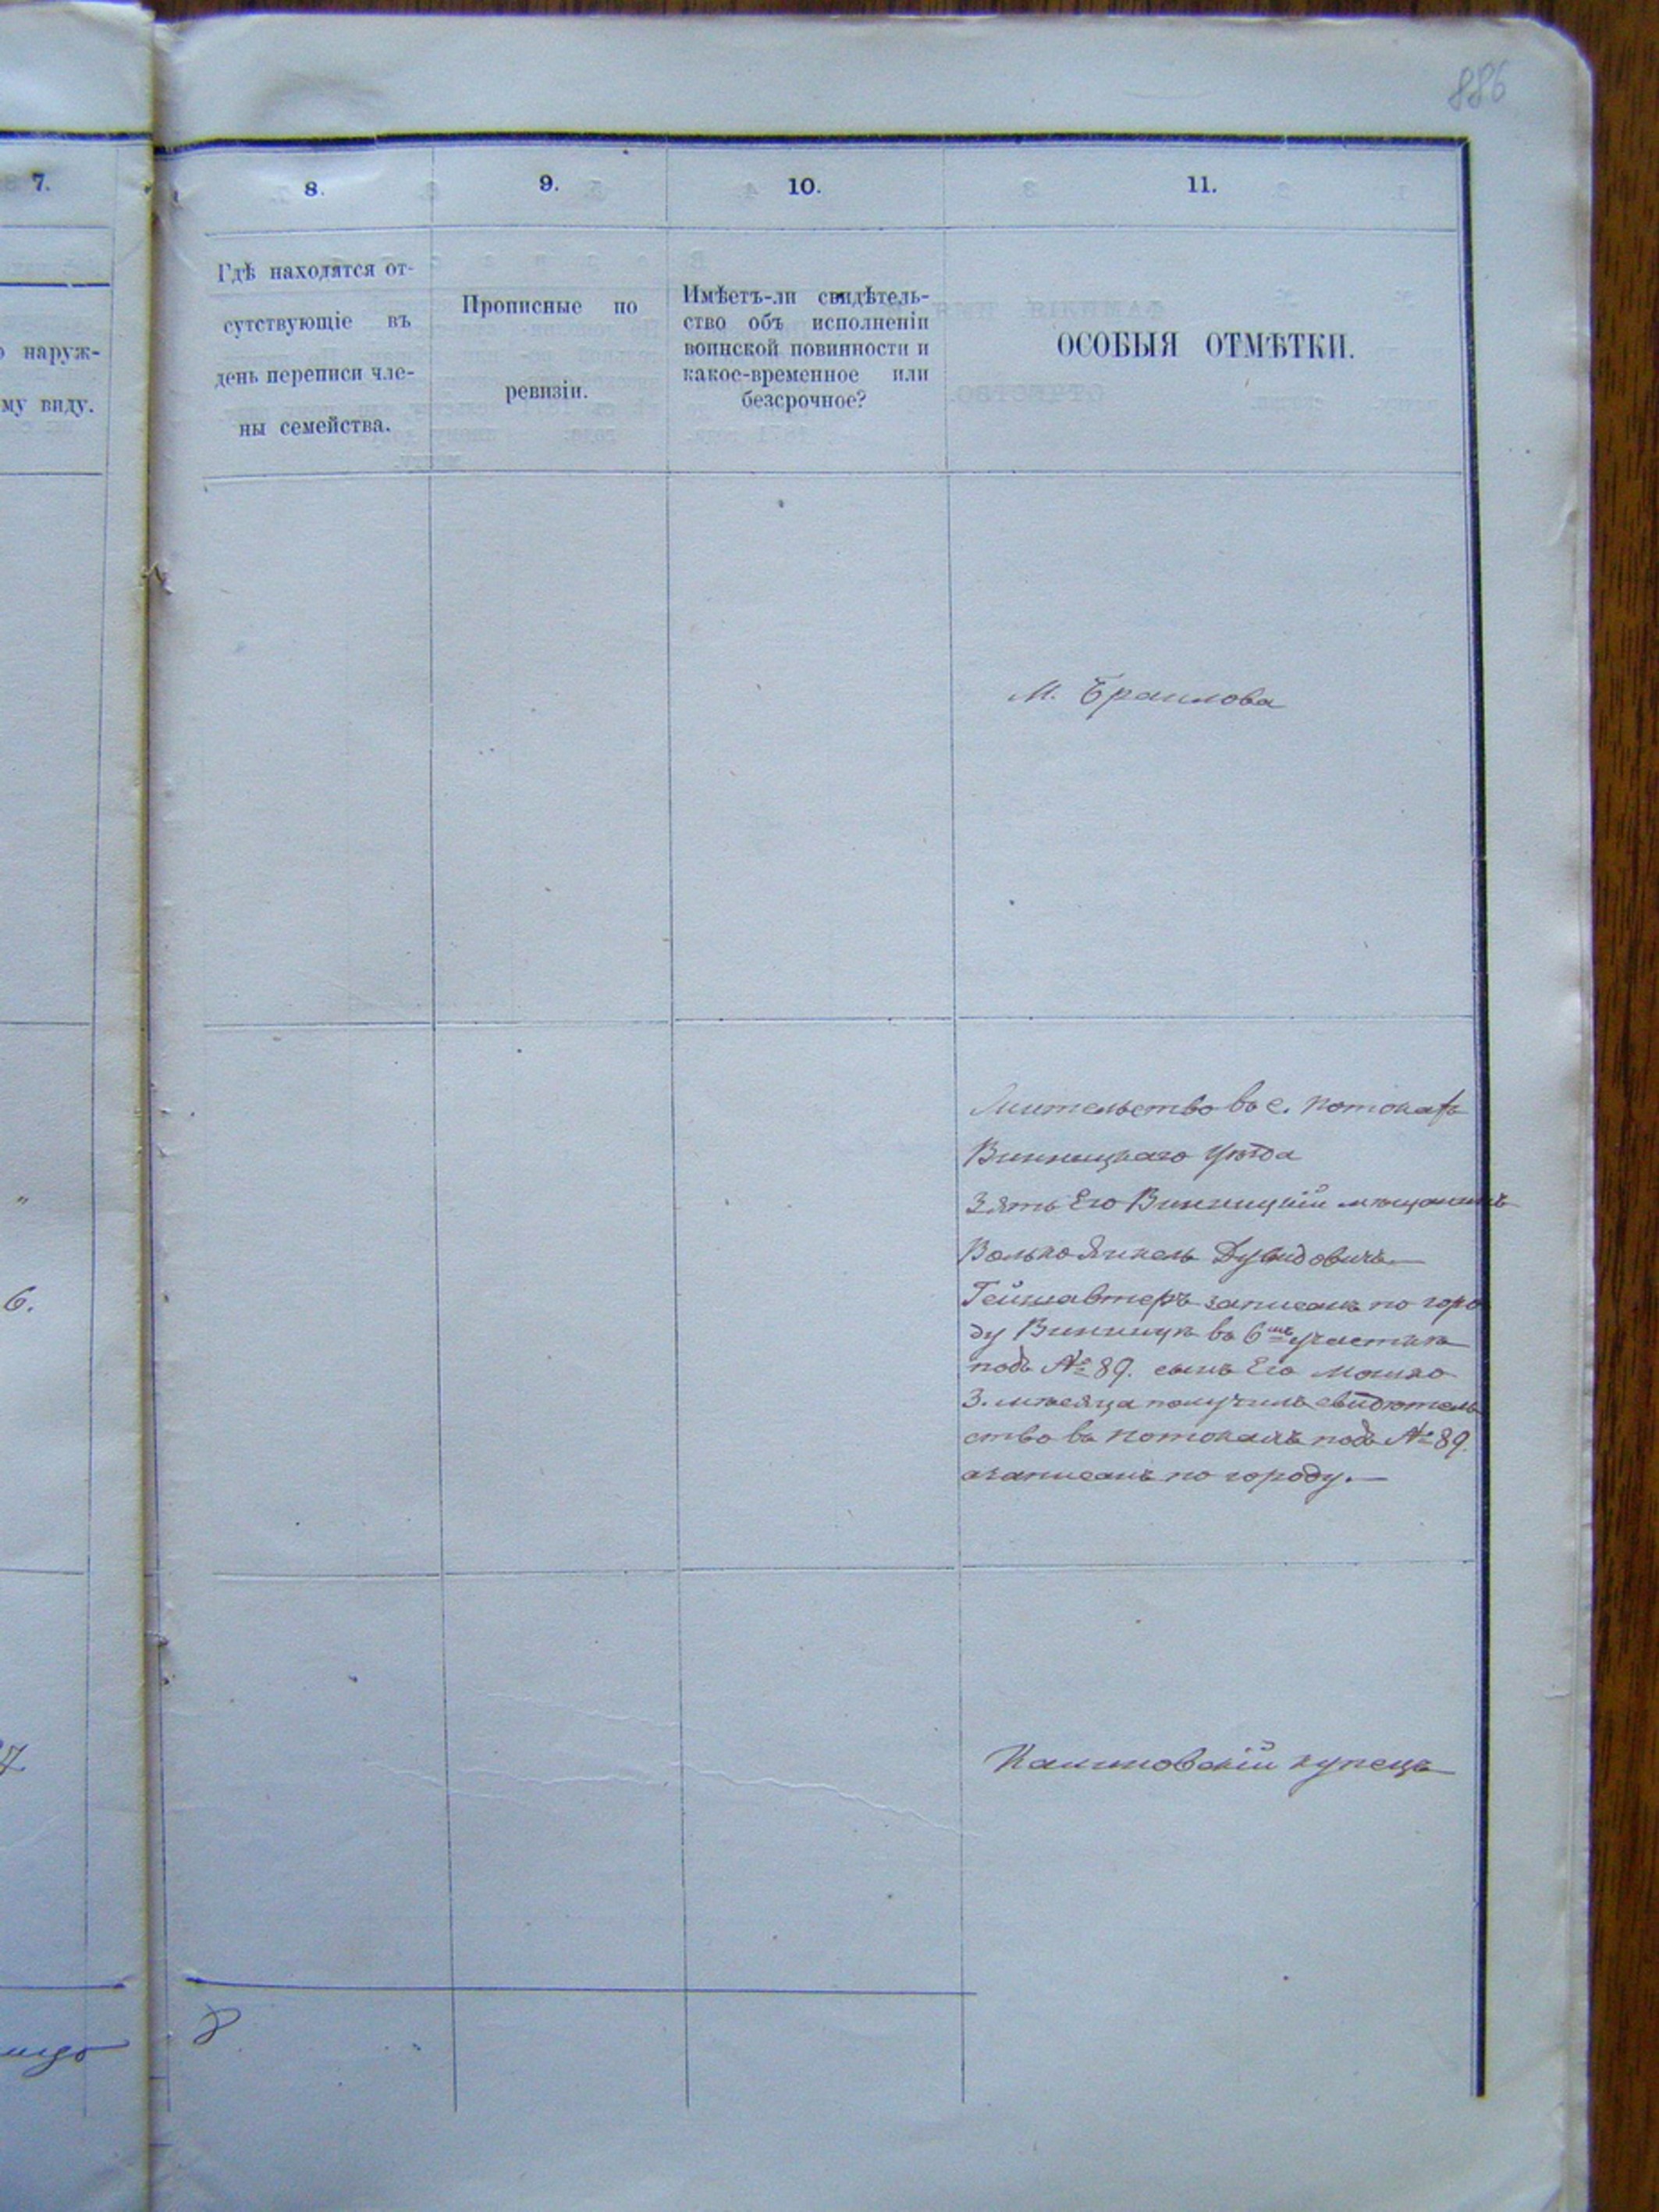 886
7.
8.
9.
10.
11.
наруж-
му виду.
Гдѣ находятся от-
сутствующіе въ
день переписи чле-
ны семейства.
Прописные по
ревизіи.
Имѣетъ-ли свидѣтель-
ство объ исполненіи
воинской повинности и
какое-временное или
безсрочное?
ОСОБЫЯ ОТМѢТКИ.
М. Браилова
"
6.
Жительство въ с. Потокахъ
Винницкаго уѣзда
Зять Его Винницкій мѣщанинъ
Волько Янкель Дувидовичъ
записанъ по горо
ду Винницѣ въ 6мъ участкѣ
подъ № 89. сынъ Его Мошко
3. мѣсяца получилъ свидѣтель
ство въ Потокахъ подъ № 89.
а записанъ по городу.—
7
Калиновскій купецъ
8